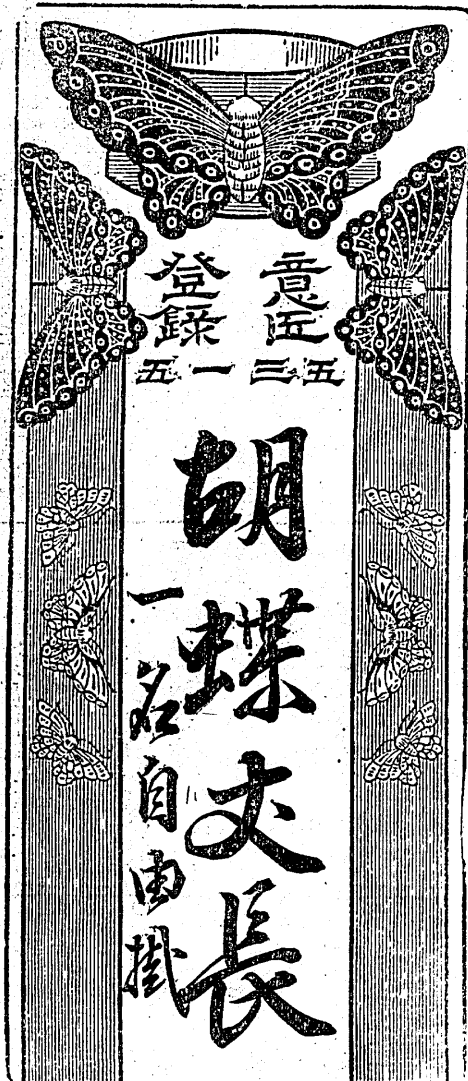 意匠
登錄
五三一五
胡蝶丈長
一名自由掛